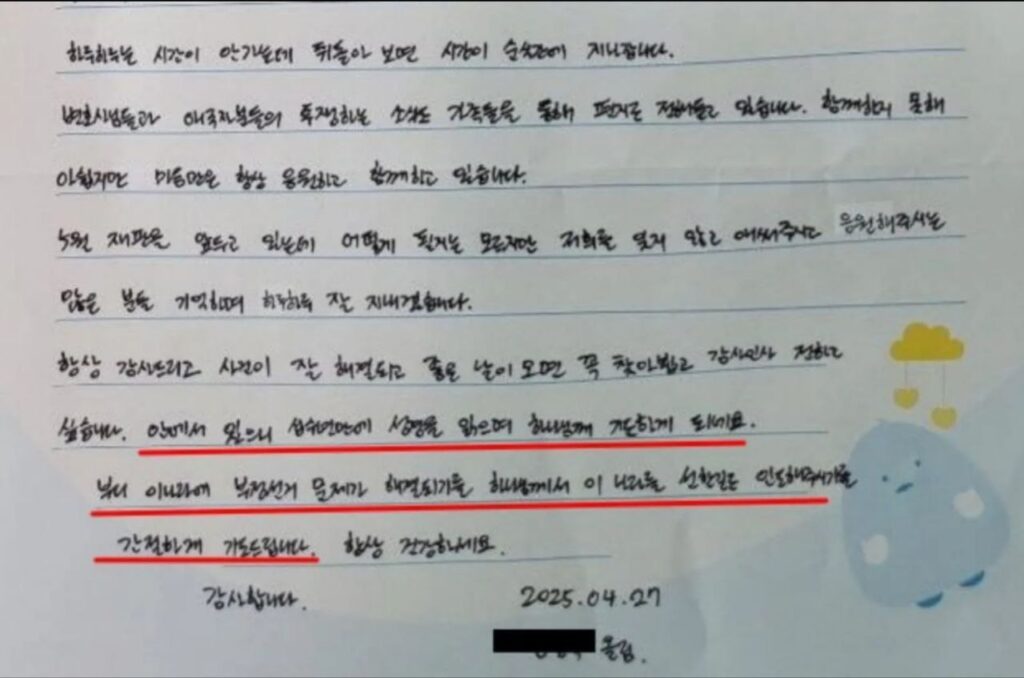 하루하루는 시간이 안가는데 뒤돌아 보면 시간이 순식간에 지나갑니다.
변호사님들과 애국자분들의 투쟁하는 소식도 가족들을 통해 편지로 전해듣고 있습니다. 함께하지 못해
아쉽지만 마음만은 항상 응원하고 함께하고 있습니다.
5월 재판을 앞두고 있는데 어떻게 될지는 모르지만 저희를 잊지 않고 애써주시고 응원해주시는
많은 분들 기억하며 하루하루 잘 지내겠습니다.
항상 감사드리고 사건이 잘 해결되고 좋은 날이 오면 꼭 찾아뵙고 감사인사 전하고
싶습니다. 안에서 있으니 십수년만에 성경을 읽으며 하나님께 기도하게 되네요.
부디 이나라에 부정선거 문제가 해결되기를 하나님께서 이 나라를 선한길로 인도해주시기를
간절하게 기도드립니다. 항상 건강하세요.
감사합니다. 2025.04.27
올림.